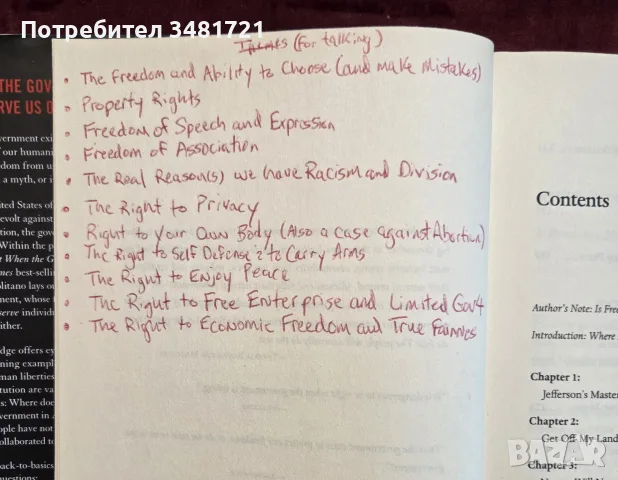 Потребител 3481721
(for talking)
• The Freedom and Ability to Choose (and make Mistakes)
• Property Rights
• Freedom of Speech and Expression
• Freedom of Association
• The Real Reason(s) we have Racism and Division
• The Right to Privacy
• Right to Your Own Body (Also a case against Abortion)
• The Right to Self Defense & to Carry Arms
• The Right to Enjoy Peace
• The Right to Free Enterprise and Limited Gov't
• The Right to Economic Freedom and True Fairness
THE GOV
RVE US O
vernment exi
f our human
dom from u
a myth, or i
ited States of
evolt against
tion, the gov
Within the p
t When the G
mes best-selli
olitano lays ou
ment, whose
serve individ
either.
edge offers ey
ning example
man liberties
tution are va
s: Where doe
vernment in
ople have not
ollaborated to
back-to-basics
questions:
Contents
Author's Note: Is Fre
Introduction: Where
Chapter 1:
Jefferson's Master
Chapter 2:
Get Off My Land
Chapter 3:
BAZAR